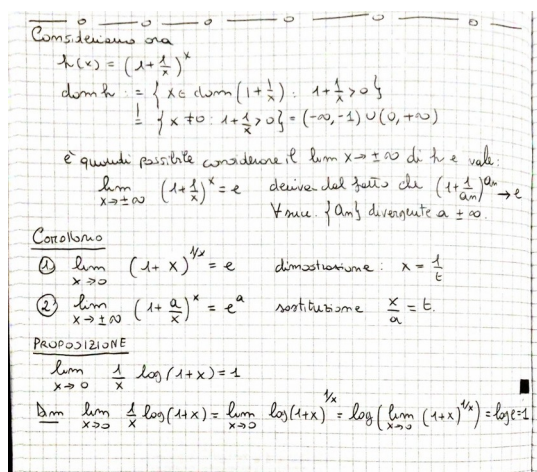 Consideriamo ora
h(x) = (1+1/x)^x
dom h := {x ∈ dom(1+1/x) : 1+1/x > 0}
= {x ≠ 0 : 1+1/x > 0} = (-∞, -1) ∪ (0, +∞)
è quindi possibile considerare il lim x→±∞ di h e vale:
lim x→±∞ (1+1/x)^x = e deriva dal fatto che (1+1/an)^an → e
∀ succ. {an} divergente a ±∞.
Corollario
① lim x→0 (1+x)^1/x = e dimostrazione : x = 1/t
② lim x→±∞ (1+a/x)^x = e^a sostituzione x/a = t.
PROPOSIZIONE
lim x→0 1/x log(1+x) = 1
Dim lim x→0 1/x log(1+x) = lim x→0 log(1+x)^1/x = log(lim x→0 (1+x)^1/x) = log e = 1